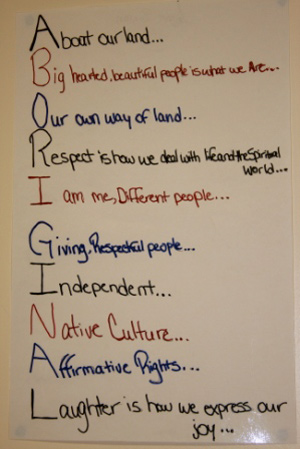 About our land...
Big hearted, beautiful people is what we Are...
Our own way of land...
Respect is how we deal with life and the Spiritual
world...
I am me, Different people...
Giving, Respectful people...
Independent...
Native Culture...
Affirmative Rights...
Laughter is how we express our
joy...